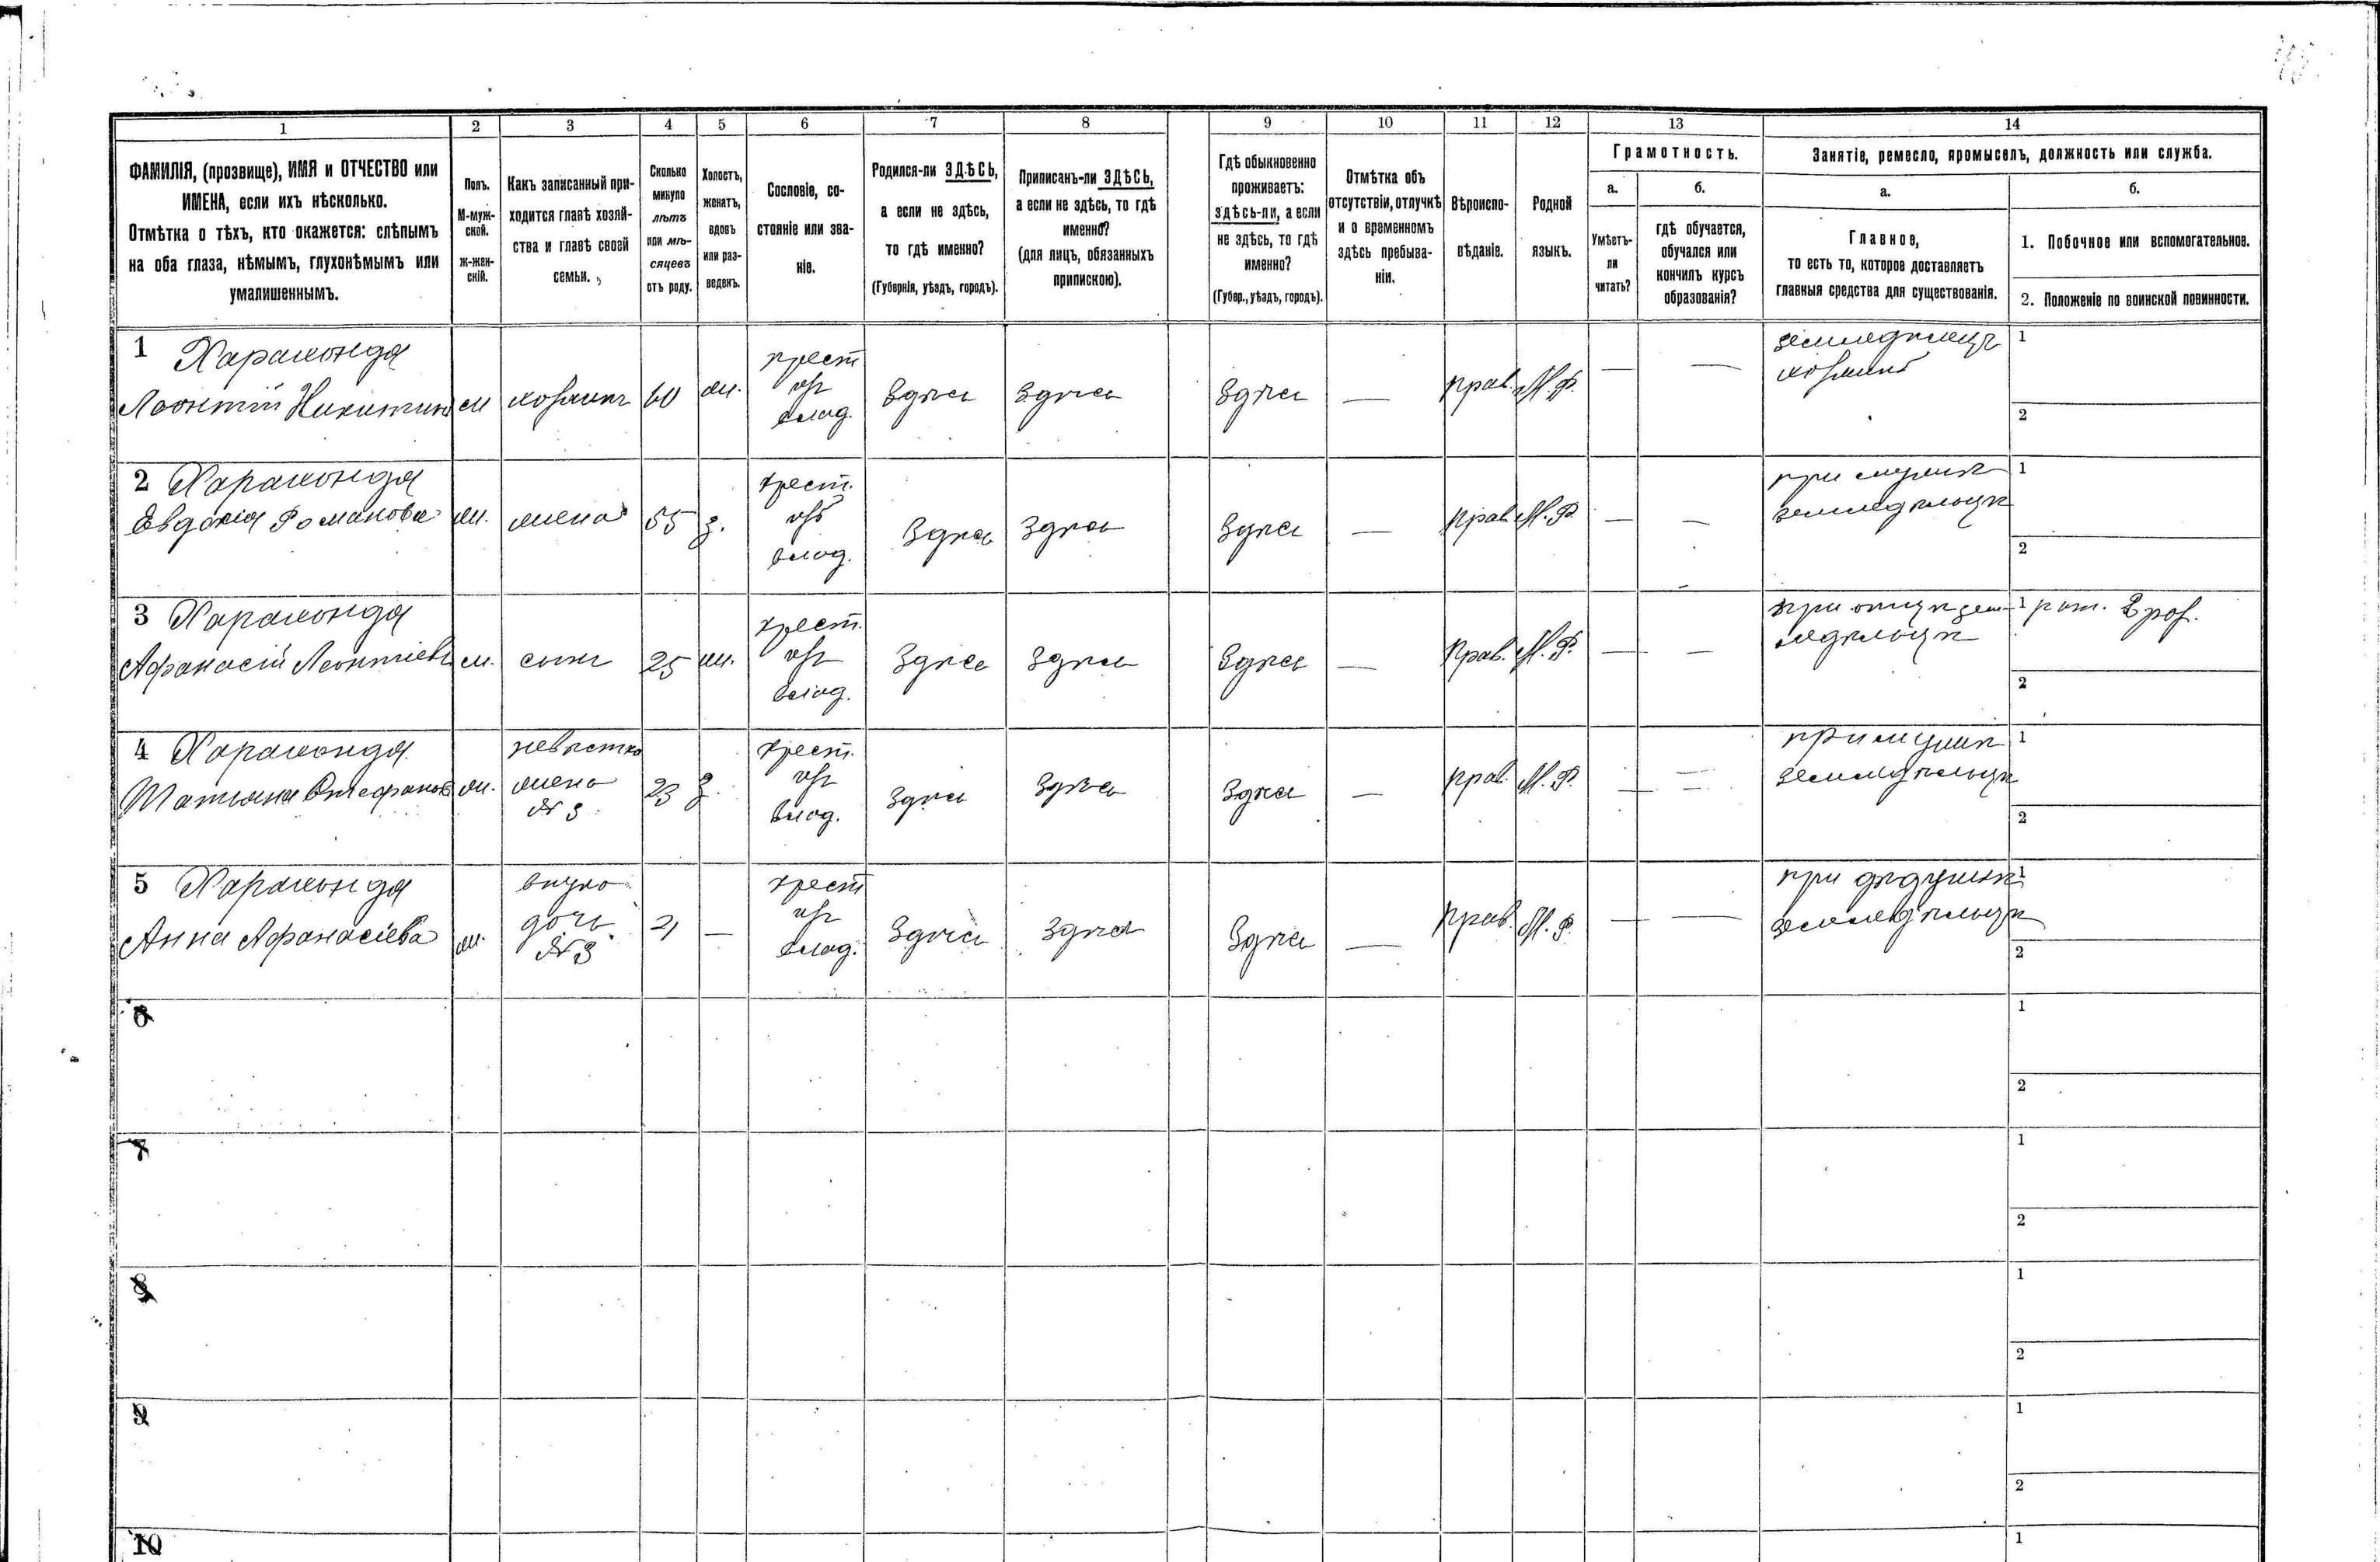 1 2 3 4 5 6 7 8 9 10 11 12 13 14
ФАМИЛІЯ, (прозвище), ИМЯ и ОТЧЕСТВО или
ИМЕНА, если ихъ нѣсколько.
Отмѣтка о тѣхъ, кто окажется: слѣпымъ
на оба глаза, нѣмымъ, глухонѣмымъ или
умалишеннымъ.
Полъ.
М-муж-
ской.
ж-жен-
скій.
Какъ записанный при-
ходится главѣ хозяй-
ства и главѣ своей
семьи.
Сколько
минуло
лѣтъ
или мѣ-
сяцевъ
отъ роду.
Холостъ,
женатъ,
вдовъ
или раз-
веденъ.
Сословіе, со-
стояніе или зва-
ніе.
Родился-ли ЗДѢСЬ,
а если не здѣсь,
то гдѣ именно?
(Губернія, уѣздъ, городъ).
Приписанъ-ли ЗДѢСЬ,
а если не здѣсь, то гдѣ
именно?
(для лицъ, обязанныхъ
припискою).
Гдѣ обыкновенно
проживаетъ:
здѣсь-ли, а если
не здѣсь, то гдѣ
именно?
(Губер., уѣздъ, городъ).
Отмѣтка объ
отсутствіи, отлучкѣ
и о временномъ
здѣсь пребыва-
ніи.
Вѣроиспо-
вѣданіе.
Родной
языкъ.
Грамотность.
а.
Умѣетъ-
ли
читать?
б.
гдѣ обучается,
обучался или
кончилъ курсъ
образованія?
Занятіе, ремесло, промыселъ, должность или служба.
а.
Главное,
то есть то, которое доставляетъ
главныя средства для существованія.
б.
1. Побочное или вспомогательное.
2. Положеніе по воинской повинности.
1 Харахонда
Леонтій Никитинъ
м
хозяинъ
60
ж.
крест
изъ
влад.
Здѣсь
Здѣсь
Здѣсь
—
прав.
М.Р.
—
—
земледѣлецъ
хозяинъ
1
2
2 Харахонда
Евдокія Романова
ж.
жена
55
з.
крест.
изъ
влад.
Здѣсь
Здѣсь
Здѣсь
—
Прав.
М.Р.
—
—
при мужѣ
земледѣльцѣ
1
2
3 Харахонда
Афанасій Леонтіевъ
м.
сынъ
25
ж.
крест.
изъ
влад.
Здѣсь
Здѣсь
Здѣсь
—
Прав.
М.Р.
—
—
при отцѣ зем-
ледѣльцѣ
1
2
4 Харахонда
Татьяна Стефанов
ж.
невѣстка
жена
№ 3
23
з.
крест.
изъ
влад.
Здѣсь
Здѣсь
Здѣсь
—
прав.
М.Р.
—
—
при мужѣ
земледѣльцѣ
1
2
5 Харахонда
Анна Афанасіева
ж.
внука
дочь
№ 3
—
крест
изъ
влад.
Здѣсь
Здѣсь
Здѣсь
—
Прав.
М.Р.
—
—
при дѣдушкѣ
земледѣльцѣ
1
2
6
1
2
7
1
2
8
1
2
9
1
2
10
1